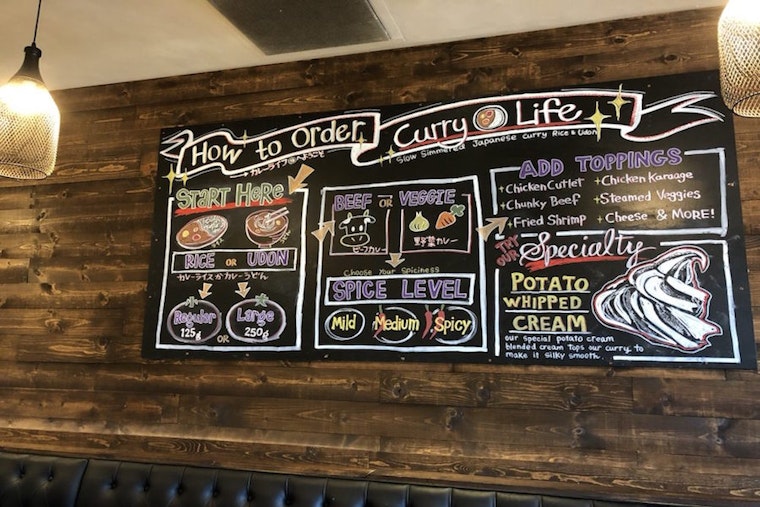 How to Order
カレーライフへようこそ
Curry Life
Slow Simmered Japanese Curry Rice & Udon
START HERE
RICE OR UDON
カレーライスかカレーうどん
Regular
125g
OR
Large
250g
BEEF OR VEGGIE
ビーフカレー
野菜カレー
Choose Your Spiciness
SPICE LEVEL
Mild
Medium
Spicy
ADD TOPPINGS
+Chicken Cutlet +Chicken Karaage
+Chunky Beef +Steamed Veggies
+Fried Shrimp + Cheese & MORE!
TRY OUR Specialty
POTATO
WHIPPED
CREAM
our special potato cream
blended cream tops our curry to
make it silky smooth.